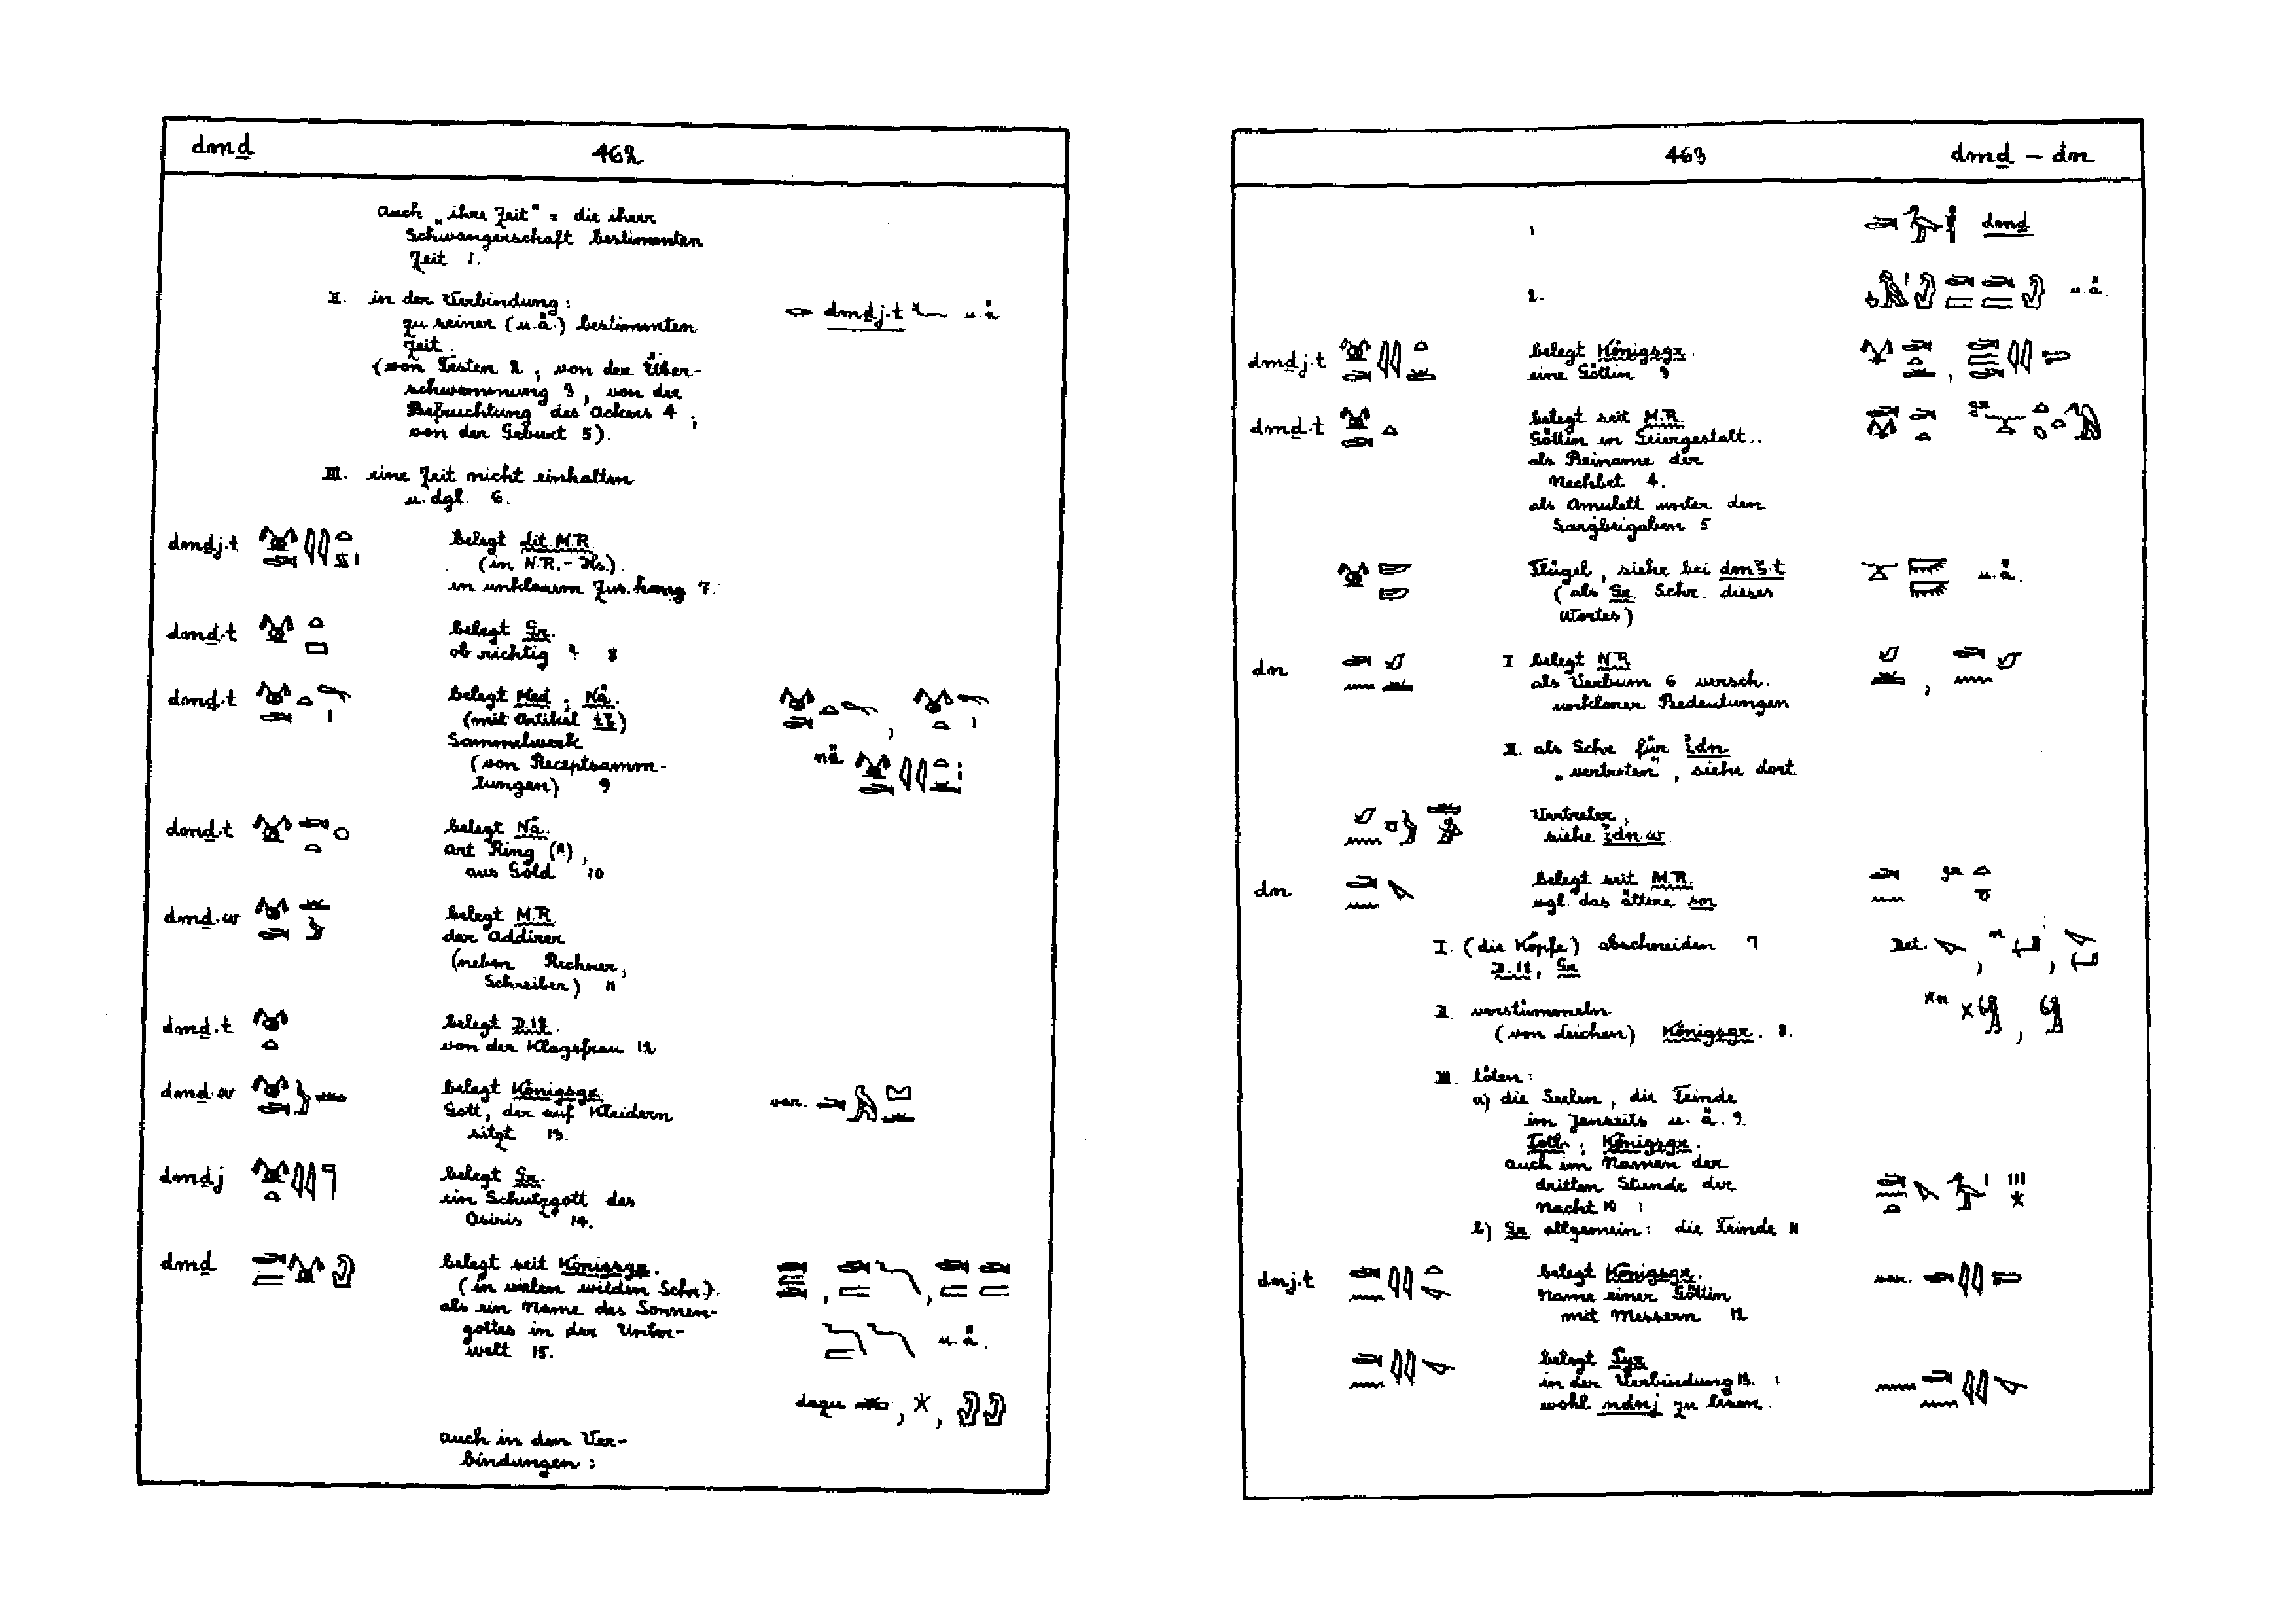 dmḏ 462
auch „ihre Zeit" = die ihrer
Schwangerschaft bestimmten
Zeit 1.
II. in der Verbindung:
zu seiner (u.ä.) bestimmten dmḏj.t u.ä
Zeit.
(von Festen 2, von der Über-
schwemmung 3, von der
Befruchtung des Ackers 4,
von der Geburt 5).
III. eine Zeit nicht einhalten
u. dgl. 6.
dmḏj.t belegt Lit. M.R.
(in N.R.-Hs.).
in unklarem Zus.hang 7.
dmḏ.t belegt Gr.
ob richtig ? 8
dmḏ.t belegt Med; Nä.
(mit Artikel tꜣ)
Sammelwerk
(von Receptsamm- nä
lungen) 9
dmḏ.t belegt Nä.
Art Ring (?),
aus Gold 10
dmḏ.w belegt M.R.
der Addirer
(neben Rechner,
Schreiber) 11
dmḏ.t belegt D.18.
von der Klagefrau 12
dmḏ.w belegt Königsgr. var.
Gott, der auf Kleidern
sitzt 13.
dmḏj belegt Gr.
ein Schutzgott des
Osiris 14.
dmḏ belegt seit Königsgr.
(in vielen wilden Schr.).
als ein Name des Sonnen-
gottes in der Unter- u.ä.
welt 15.
dazu
auch in den Ver-
bindungen:
463 dmḏ – dn
1 dmḏ
2. u.ä.
dmḏj.t belegt Königsgr.
eine Göttin 3
dmḏ.t belegt seit M.R. gr
Göttin in Geiergestalt..
als Beiname der
Nechbet 4.
als Amulett unter den
Sargbeigaben 5
Flügel, siehe bei dmꜣ.t u.ä.
(als Gr. Schr. dieses
Wortes)
dn I belegt N.R.
als Verbum 6 versch.
unklarer Bedeutungen
II. als Schr für idn
„vertreten", siehe dort
Vertreter,
siehe idn.w
dn belegt seit M.R. gr
vgl. das ältere sn
I. (die Köpfe) abschneiden 7 Det.
D.18, Gr
II. verstümmeln
(von Leichen) Königsgr. 8.
III. töten:
a) die Seelen, die Feinde
im Jenseits u. ä. 9.
Totb; Königsgr.
auch im Namen der
dritten Stunde der
Nacht 10 :
b) Gr. allgemein: die Feinde 11
dnj.t belegt Königsgr. var.
Name einer Göttin
mit Messern 12
belegt Pyr
in der Verbindung 13. :
wohl ndnj zu lesen.